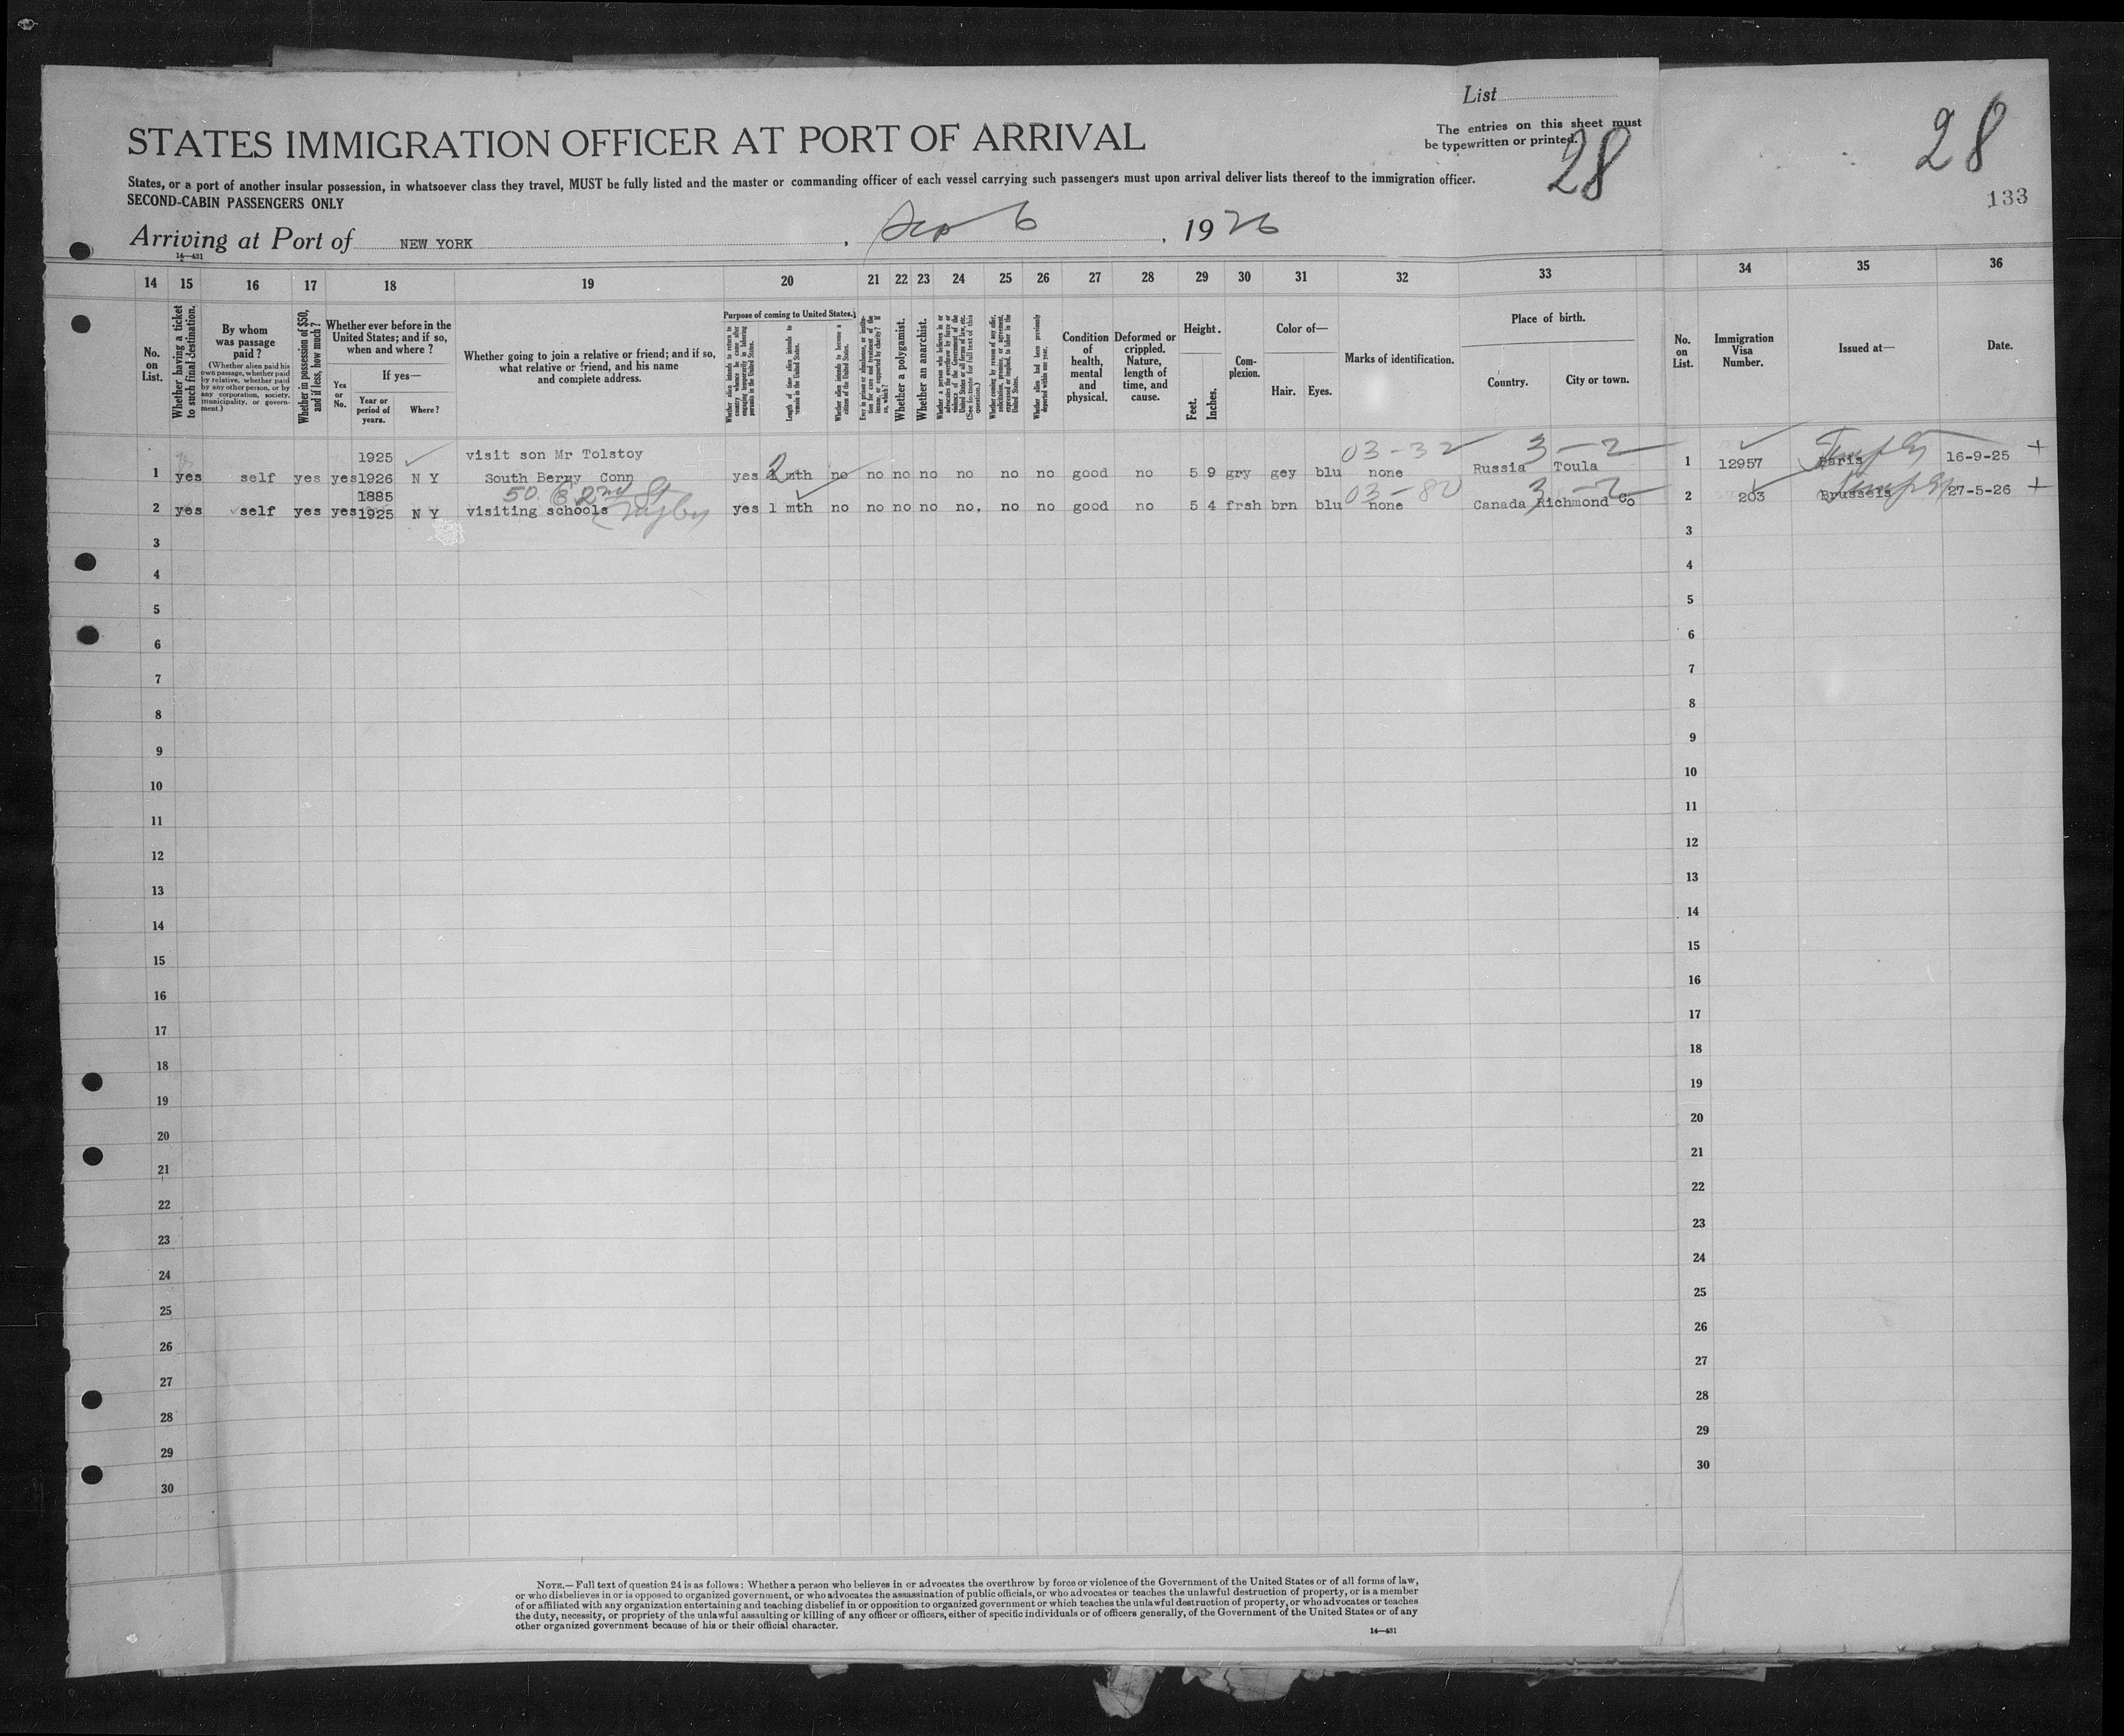 List
The entries on this sheet must
be typewritten or printed.
28
28
133
STATES IMMIGRATION OFFICER AT PORT OF ARRIVAL
States, or a port of another insular possession, in whatsoever class they travel, MUST be fully listed and the master or commanding officer of each vessel carrying such passengers must upon arrival deliver lists thereof to the immigration officer.
SECOND-CABIN PASSENGERS ONLY
Arriving at Port of NEW YORK, Sep 6, 1926
14—431
14 15 16 17 18 19 20 21 22 23 24 25 26 27 28 29 30 31 32 33 34 35 36
No. on List.
Whether having a ticket to such final destination.
By whom was passage paid?
(Whether alien paid his own passage, whether paid by relative, whether paid by any other person, or by any corporation, society, municipality, or government.)
Whether in possession of $50, and if less, how much?
Whether ever before in the United States; and if so, when and where?
Yes or No.
If yes—
Year or period of years.
Where?
Whether going to join a relative or friend; and if so, what relative or friend, and his name and complete address.
Purpose of coming to United States.
Whether alien intends to return to country whence he came after engaging temporarily in laboring pursuits in the United States.
Length of time alien intends to remain in the United States.
Whether alien intends to become a citizen of the United States.
Ever in prison or almshouse, or institution for care and treatment of the insane, or supported by charity? If so, which?
Whether a polygamist.
Whether an anarchist.
Whether a person who believes in or advocates the overthrow by force or violence of the Government of the United States or all forms of law, etc. (See footnote for full text of this question.)
Whether coming by reason of any offer, solicitation, promise, or agreement, expressed or implied, to labor in the United States.
Whether alien had been previously deported within one year.
Condition of health, mental and physical.
Deformed or crippled. Nature, length of time, and cause.
Height.
Feet.
Inches.
Complexion.
Color of—
Hair.
Eyes.
Marks of identification.
Place of birth.
Country.
City or town.
No. on List.
Immigration Visa Number.
Issued at—
Date.
1925 visit son Mr Tolstoy 03-32 3-2
1 yes self yes yes 1926 N Y South Berry Conn yes 2 mth no no no no no no no good no 5 9 gry gey blu none Russia Toula 1 12957 Paris 16-9-25 +
1885 50. E 2nd St 03-80 3-2
2 yes self yes yes 1925 N Y visiting schools yes 1 mth no no no no no, no no good no 5 4 frsh brn blu none Canada Richmond Co 2 203 Brussels 27-5-26 +
3 3
4 4
5 5
6 6
7 7
8 8
9 9
10 10
11 11
12 12
13 13
14 14
15 15
16 16
17 17
18 18
19 19
20 20
21 21
22 22
23 23
24 24
25 25
26 26
27 27
28 28
29 29
30 30
NOTE.—Full text of question 24 is as follows: Whether a person who believes in or advocates the overthrow by force or violence of the Government of the United States or of all forms of law,
or who disbelieves in or is opposed to organized government, or who advocates the assassination of public officials, or who advocates or teaches the unlawful destruction of property, or is a member
of or affiliated with any organization entertaining and teaching disbelief in or opposition to organized government or which teaches the unlawful destruction of property, or who advocates or teaches
the duty, necessity, or propriety of the unlawful assaulting or killing of any officer or officers, either of specific individuals or of officers generally, of the Government of the United States or of any
other organized government because of his or their official character.
14—431